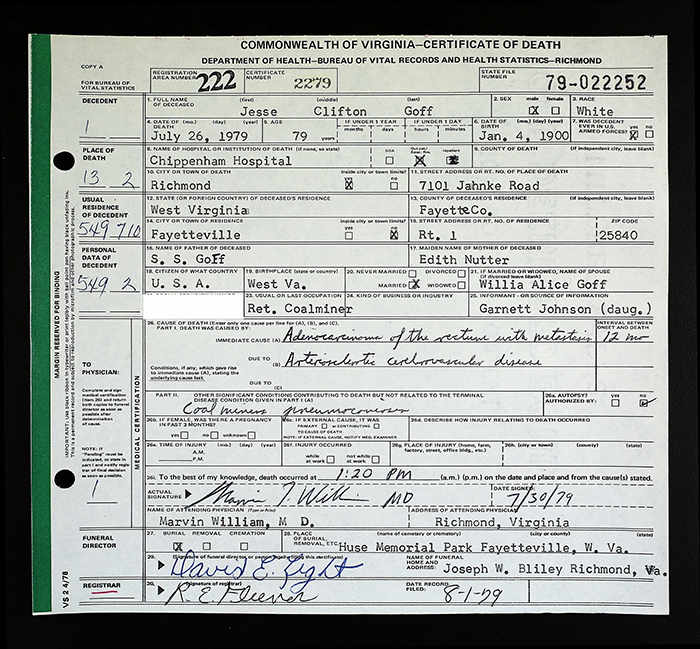 COMMONWEALTH OF VIRGINIA—CERTIFICATE OF DEATH
DEPARTMENT OF HEALTH—BUREAU OF VITAL RECORDS AND HEALTH STATISTICS—RICHMOND
COPY A
FOR BUREAU OF VITAL STATISTICS
REGISTRATION AREA NUMBER 222
CERTIFICATE NUMBER 2279
STATE FILE NUMBER 79-022252
DECEDENT
1
1. FULL NAME OF DECEASED (first) (middle) (last)
Jesse Clifton Goff
2. SEX male female
X
3. RACE
White
4. DATE OF DEATH (mo.) (day) (year)
July 26, 1979
5. AGE
79 years
IF UNDER 1 YEAR months days
IF UNDER 1 DAY hours minutes
6. DATE OF BIRTH (mo.) (day) (year)
Jan. 4, 1900
7. WAS DECEDENT EVER IN U.S. ARMED FORCES? yes no
X
PLACE OF DEATH
13 2
8. NAME OF HOSPITAL OR INSTITUTION OF DEATH (if none, so state)
Chippenham Hospital
DOA
Inpatient
9. COUNTY OF DEATH (if independent city, leave blank)
10. CITY OR TOWN OF DEATH inside city or town limits? yes no
Richmond X
11. STREET ADDRESS OR RT. NO. OF PLACE OF DEATH
7101 Jahnke Road
USUAL RESIDENCE OF DECEDENT
549 710
12. STATE (OR FOREIGN COUNTRY) OF DECEASED'S RESIDENCE
West Virginia
13. COUNTY OF DECEASED'S RESIDENCE (if independent city, leave blank)
FayetteCo.
14. CITY OR TOWN OF RESIDENCE inside city or town limits? yes no
Fayetteville X
15. STREET ADDRESS OR RT. NO. OF RESIDENCE ZIP CODE
Rt. 1 25840
PERSONAL DATA OF DECEDENT
549 2
16. NAME OF FATHER OF DECEASED
S. S. Goff
17. MAIDEN NAME OF MOTHER OF DECEASED
Edith Nutter
18. CITIZEN OF WHAT COUNTRY
U. S. A.
19. BIRTHPLACE (state or country)
West Va.
20. NEVER MARRIED DIVORCED
MARRIED X WIDOWED
21. IF MARRIED OR WIDOWED, NAME OF SPOUSE (if divorced leave blank)
Willia Alice Goff
23. USUAL OR LAST OCCUPATION
Ret. Coalminer
24. KIND OF BUSINESS OR INDUSTRY
25. INFORMANT - OR SOURCE OF INFORMATION
Garnett Johnson (daug.)
MARGIN RESERVED FOR BINDING
TO PHYSICIAN:
Complete and sign medical certification (item 26) and return both copies to funeral director as soon as possible after determination of cause.
NOTE: If "Pending" must be indicated, so state in part I and notify registrar of final decision as soon as possible.
1
MEDICAL CERTIFICATION
26. CAUSE OF DEATH (Enter only one cause per line for (A), (B), and (C).
PART I. DEATH WAS CAUSED BY:
INTERVAL BETWEEN ONSET AND DEATH
IMMEDIATE CAUSE (A) Adenocarcinoma of the rectum with metastasis 12 mo
DUE TO (B) Arteriosclerotic cerebrovascular disease
Conditions, if any, which gave rise to immediate cause (A), stating the underlying cause last.
DUE TO (C)
PART II. OTHER SIGNIFICANT CONDITIONS CONTRIBUTING TO DEATH BUT NOT RELATED TO THE TERMINAL CONDITION GIVEN IN PART I (A)
Coal miners pneumoconiosis
26a. AUTOPSY? AUTHORIZED BY: yes no
26b. IF FEMALE, WAS THERE A PREGNANCY IN PAST 3 MONTHS?
yes no unknown
26c. IF EXTERNAL CAUSE, IT WAS
PRIMARY or CONTRIBUTING
TO CAUSE OF DEATH
NOTE: IF EXTERNAL CAUSE, NOTIFY MED. EXAMINER
26d. DESCRIBE HOW INJURY RELATING TO DEATH OCCURRED
26e. TIME OF INJURY (mo.) (day) (year)
A.M.
P.M.
26f. INJURY OCCURRED
while at work not while at work
26g. PLACE OF INJURY (home, farm, factory, street, office bldg., etc.)
26h. (city or town) (county) (state)
26i. To the best of my knowledge, death occurred at 1:20 PM (a.m.) (p.m.) on the date and place and from the cause(s) stated.
ACTUAL SIGNATURE Marvin T. Willi MD
DATE SIGNED 7/30/79
NAME OF ATTENDING PHYSICIAN (Type or Print)
Marvin William, M D.
ADDRESS OF ATTENDING PHYSICIAN
Richmond, Virginia
FUNERAL DIRECTOR
27. BURIAL REMOVAL CREMATION
X
28. PLACE OF BURIAL, REMOVAL, ETC. (name of cemetery or crematory) (city or county) (state)
Huse Memorial Park Fayetteville, W. Va.
29. (Signature of funeral director or person legally filing this certificate)
NAME OF FUNERAL HOME AND ADDRESS: Joseph W. Bliley Richmond, Va.
REGISTRAR
30. (signature of registrar)
DATE RECORD FILED: 8-1-79
VS 2 4/78